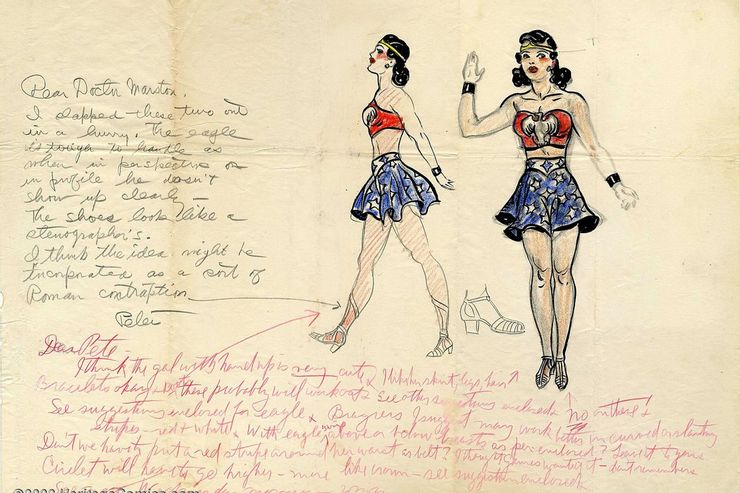 Dear Doctor Marston,
I slapped these two out
in a hurry. The eagle
is tough to handle as
when in perspective or
in profile he doesn't
show up clearly —
The shoes look like a
stenographer's.
I think the idea might be
incorporated as a sort of
Roman contraption
Peter
Dear Pete —
I think the gal with hand up is very cute. I like her skirt, legs, hair
Bracelets okay + these probably will work out. See other suggestions enclosed. No on these +
See suggestions enclosed for eagle Braziers I suggest may work better in curved or slanting
stripes — red + white. With eagle's wings above or below breasts as per enclosed? Leave it to you.
Don't we have to put a red stripe around her waist as belt? I thought Gaines wanted it — don't remember.
Circlet will have to go higher — more like crown — see suggestion enclosed.